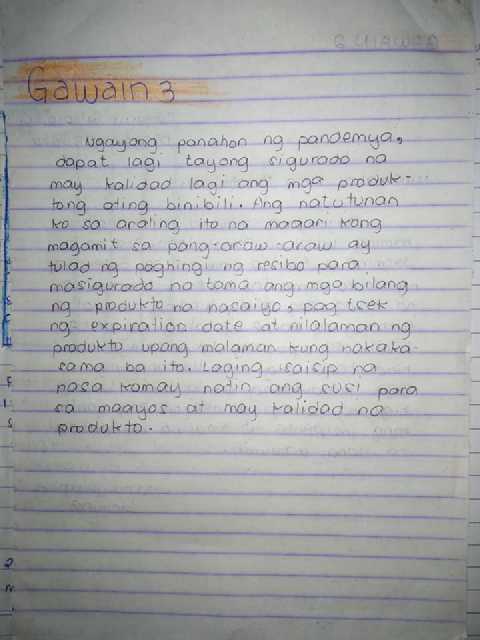 Gawain 3
Ngayong panahon ng pandemya,
dapat lagi tayong sigurado na
may kalidad lagi ang mga produk-
tong ating binibili. Ang natutunan
ko sa araling ito na maaari kong
magamit sa pang-araw-araw ay
tulad ng paghingi ng resibo para
masigurado na tama ang mga bilang
ng produkto na nasaiyo, pag tsek
ng expiration date at nilalaman ng
produkto upang malaman kung nakaka-
sama ba ito. Laging isaisip na
nasa kamay natin ang susi para
sa maayos at may kalidad na
produkto.